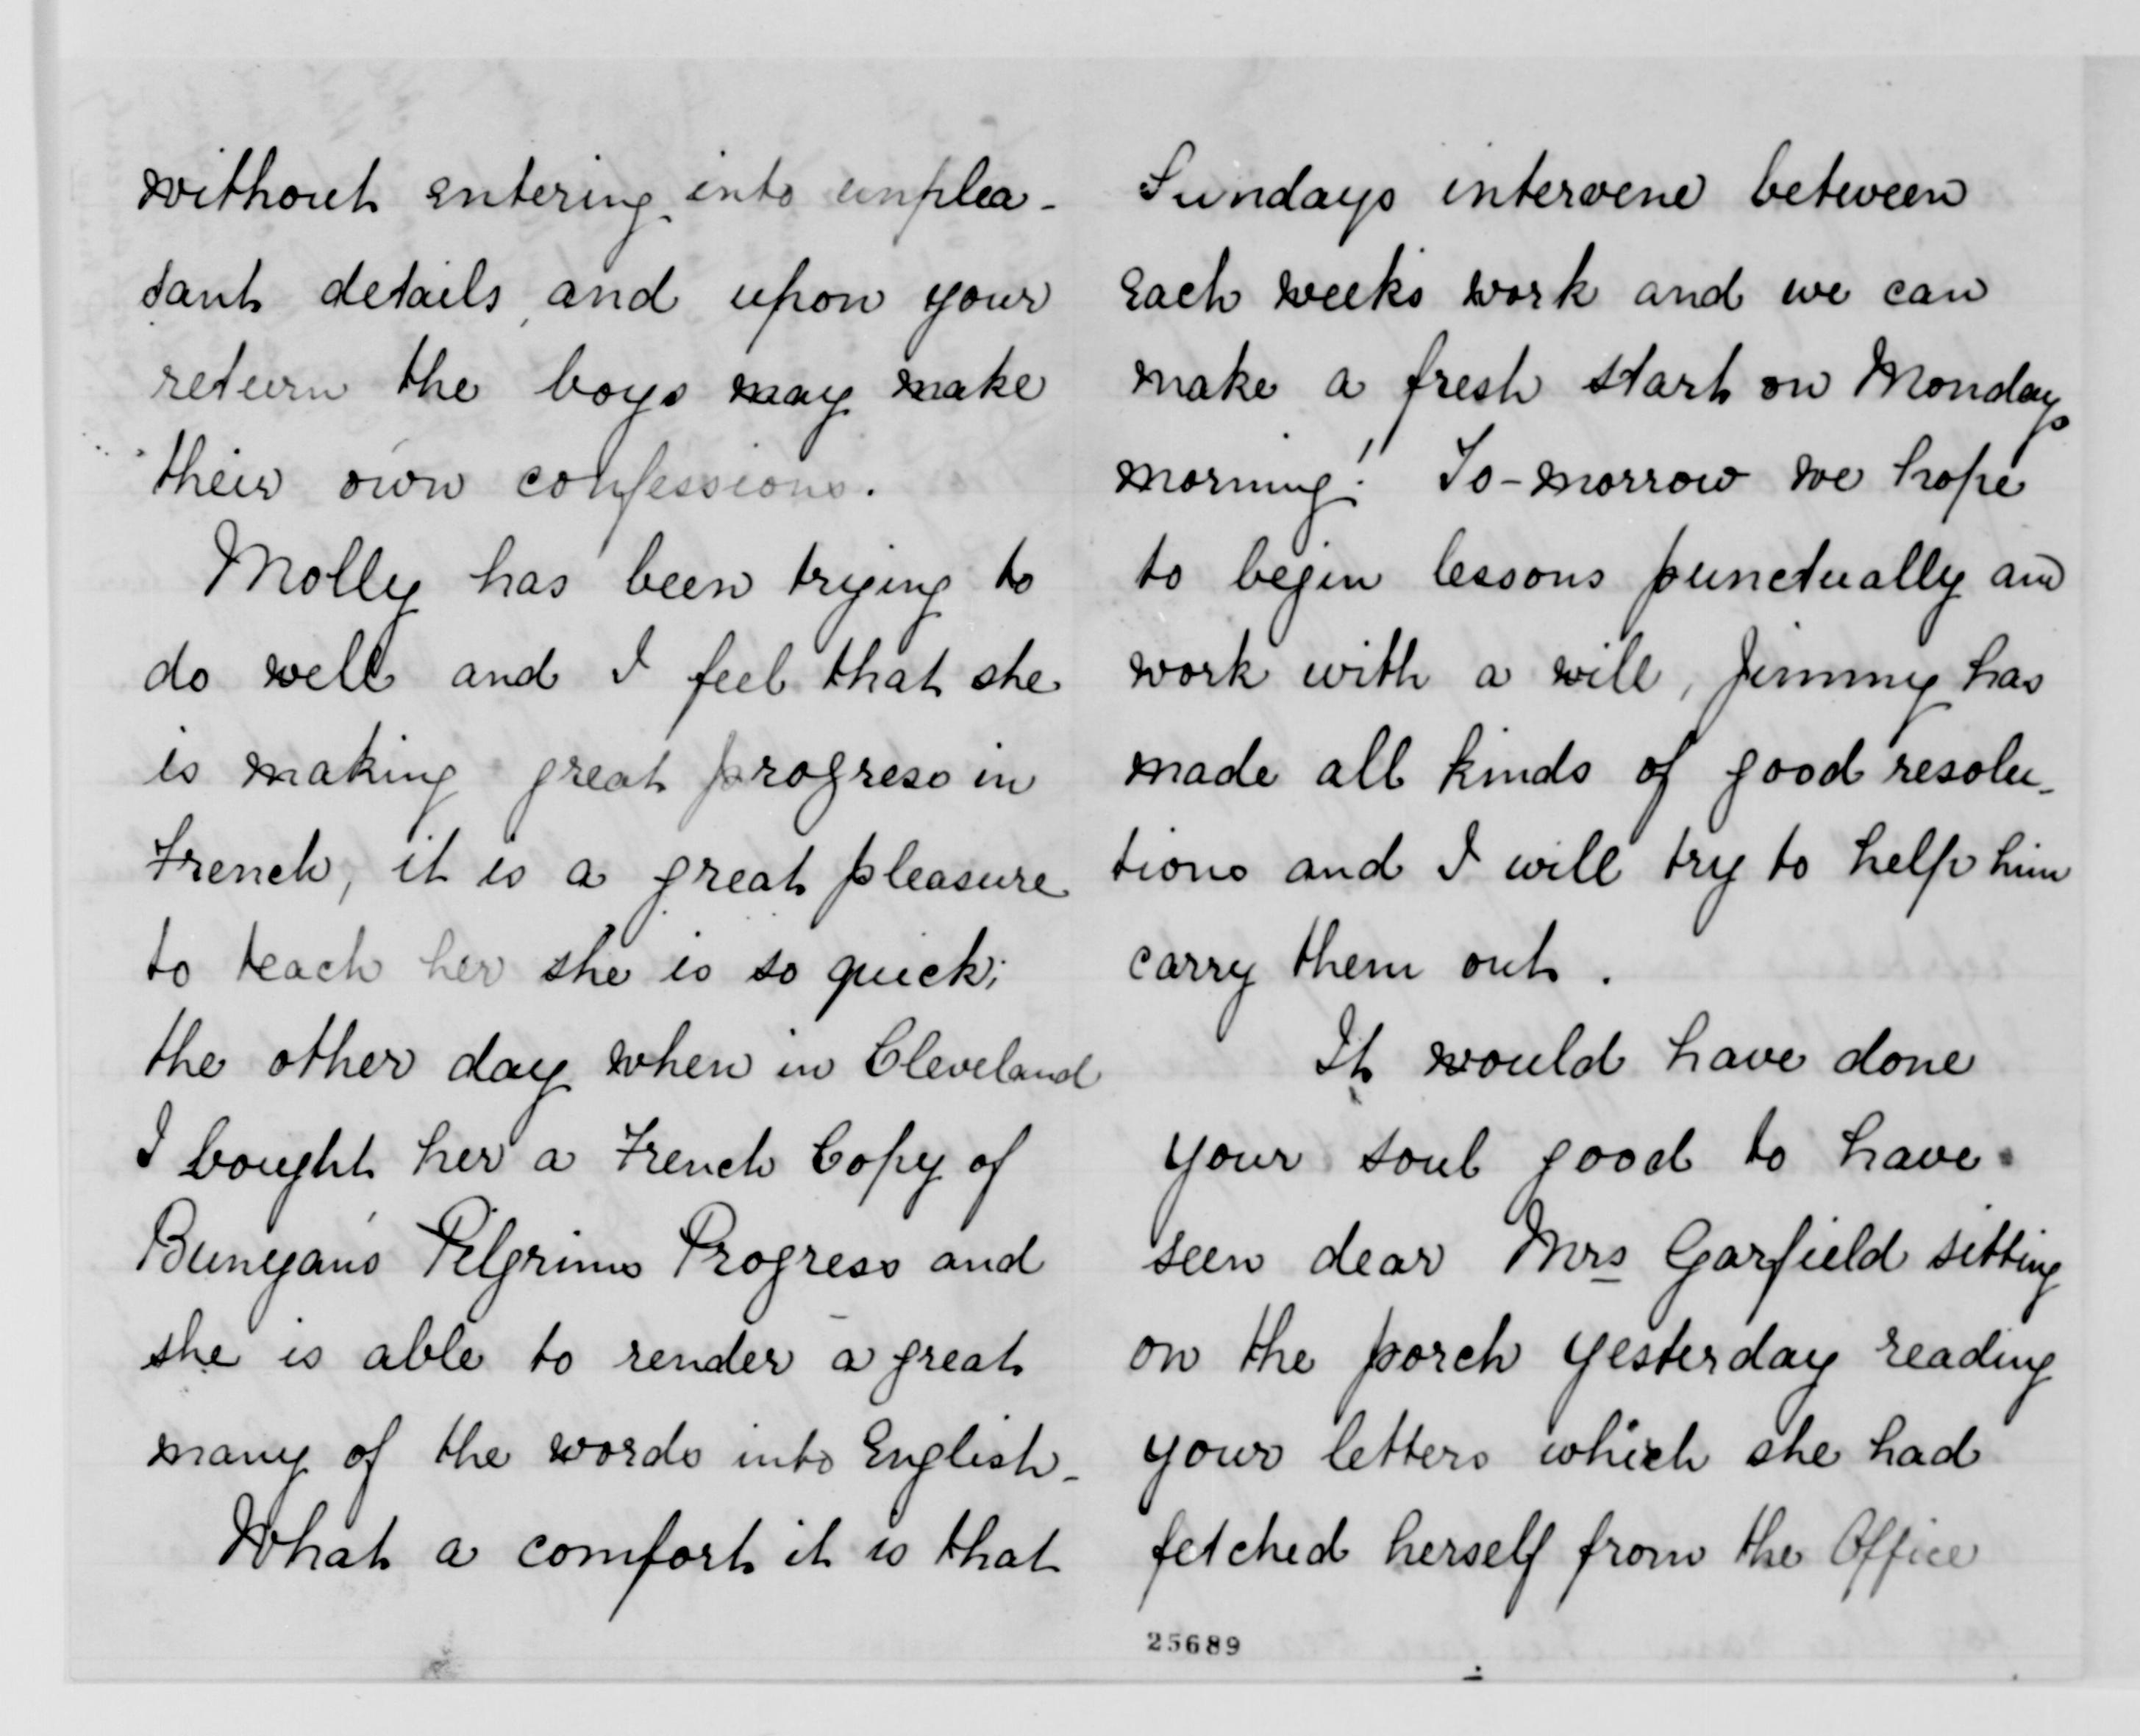 without entering into unplea-
sant details, and upon your
return the boys may make
their own confessions.
Molly has been trying to
do well and I feel that she
is making great progress in
French, it is a great pleasure
to teach her she is so quick;
the other day when in Cleveland
I bought her a French Copy of
Bunyan's Pilgrims Progress and
she is able to render a great
many of the words into English.
What a comfort it is that
Sundays intervene between
each weeks work and we can
make a fresh start on Mondays
morning! To-morrow we hope
to begin lessons punctually and
work with a will, Jimmy has
made all kinds of good resolu-
tions and I will try to help him
carry them out.
It would have done
your soul good to have
seen dear Mrs Garfield sitting
on the porch yesterday reading
your letters which she had
fetched herself from the Office
25689